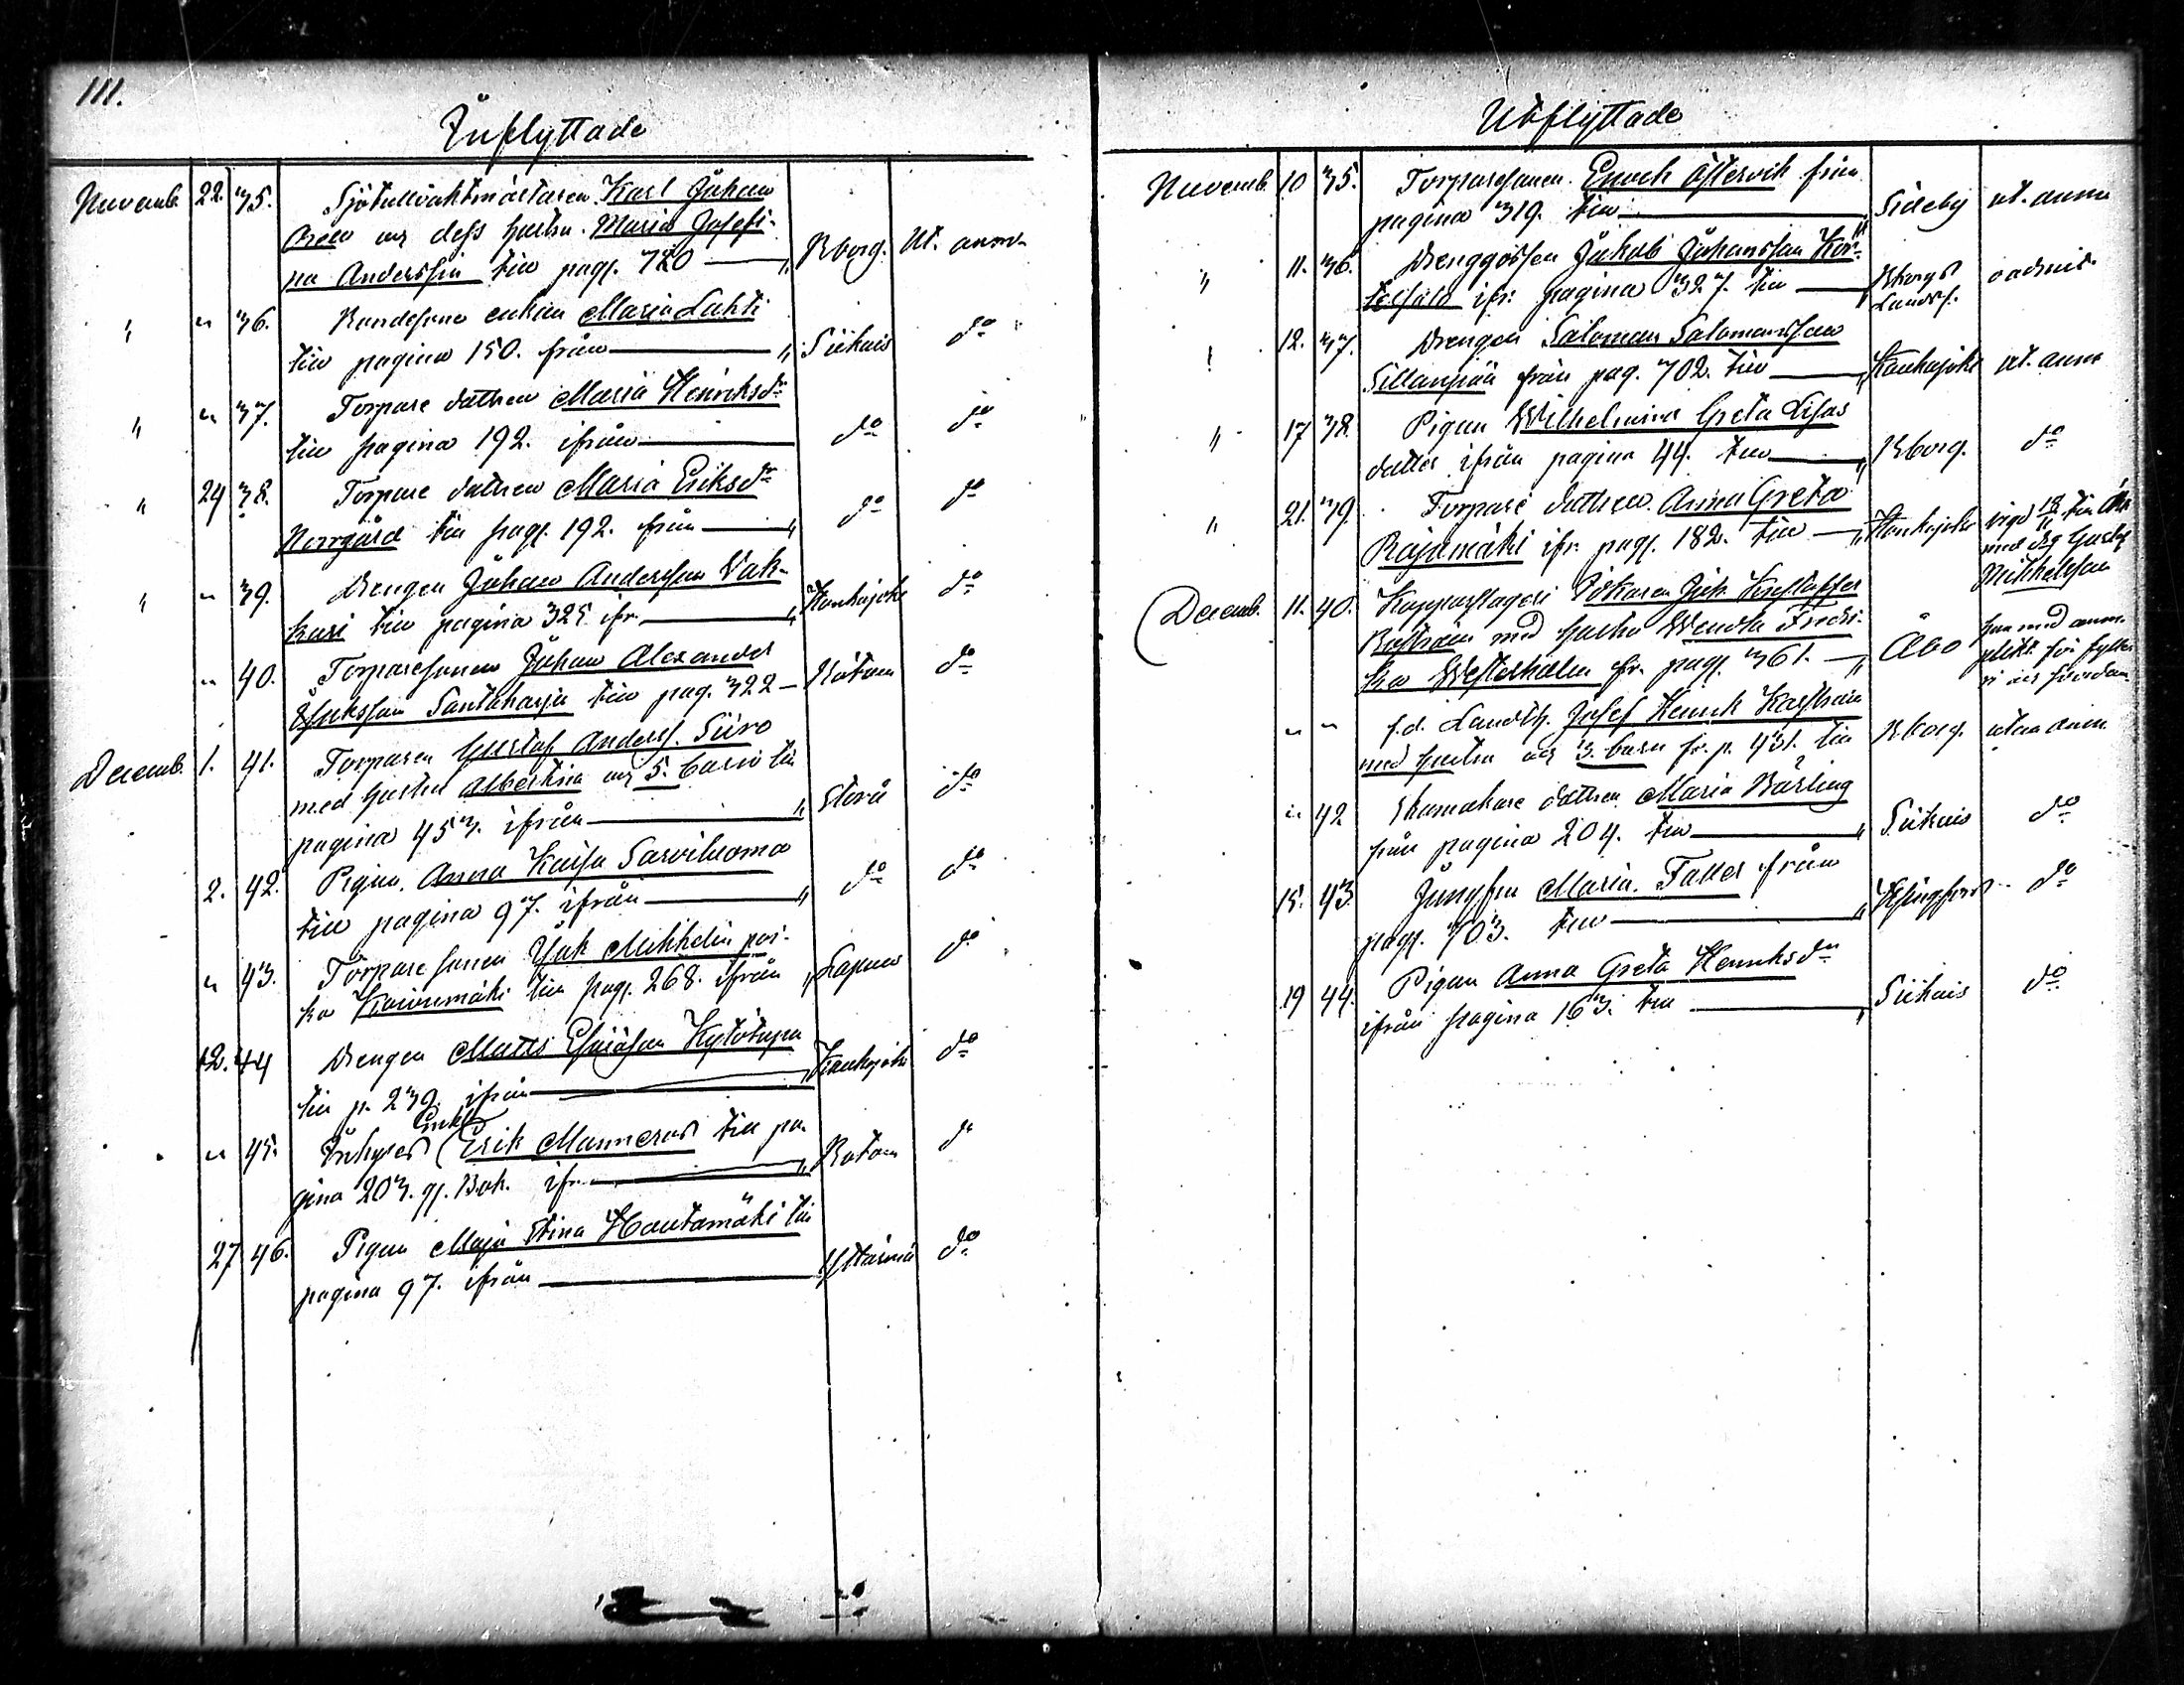 111.
Inflyttade
Novemb. 22. 35. Sjötullvaktmästaren Karl Johan
och dess hustru Maria Josefi-
na Andersin till pag. 720 — " Bborg. Ut. anm.
" " 36. Bondesone enkan Maria Lahti
till pagina 150. från — " Siikais do
" " 37. Torpare dottren Maria Henriksdr
till pagina 192. ifrån — do do
" 24 38. Torpare dottren Maria Eriksdr
Norrgård till pag. 192. från — " do do
" " 39. Drengen Johan Andersson Vak-
kuri till pagina 325 ifr. — " Kauhajoki do
" 40. Torparesonen Johan Alexander
Santaharju till pag. 322 — Bötom do
Decemb. 1. 41. Torparen Gustaf Anders. Siiro
med hustru Albertina och 5. barn till
pagina 453. ifrån — " Storå do
2. 42. Pigan Anna Kaisa Sarviluoma
till pagina 97. ifrån — " do do
" 43. Torpare sonen Mikkelin poi-
ka Koivumäki till pag. 268. ifrån " Lappo do
12. 44 Drengen Matts Esaiasson Kytötupa
till p. 239. ifrån — " Kauhajoki do
Enkl.
" 45. Inhyses Erik Mannerus till pa-
gina 203. gl. Bok. ifr. — " Botom do
27 46. Pigan Maja Stina Hautamäki till
pagina 97. ifrån — Ylistarmä do
Utflyttade
Novemb. 10 35. Torparesonen Enoch Östervik från
pagina 319. till — " Sideby ut. anm
" 11. 36. Drenggossen Jakob Johansson Kor-
ifr. pagina 327. till — Bborgs
Landsf. oadmit.
" 12. 37. Drengen Salomon Salomonsson
Sillanpää från pag. 702. till — " Kauhajoki ut. anm
" 17 38. Pigan Wilhelmina Greta Lisas
dotter ifrån pagina 44. till — " Bborg. do
" 21. 39. Torpare dottren Anna Greta
Rajamäki ifr. pag. 182. till — " Kauhajoki vigd 18/11
med drg Gustaf
Mikkelsson
Decemb. 11. 40. Kopparslagari Johan Kristoffer
Boström med hustru Wendla Fredri-
ka Westerholm fr. pag. 361. — " Åbo han med anm.
plikt för fylleri
" " f.d. Landtb. Josef Henrik Karström
med hustru och 3. barn fr. p. 431. till Bborg. utan anm.
" 42 Skomakare dottren Maria Bärling
från pagina 204. till — " Siikais do
15. 43 Jungfru Maria Faller från
pag. 703. till — " Helsingfors do
19 44. Pigan Anna Greta Henriksdr
ifrån pagina 163. till — " Siikais do